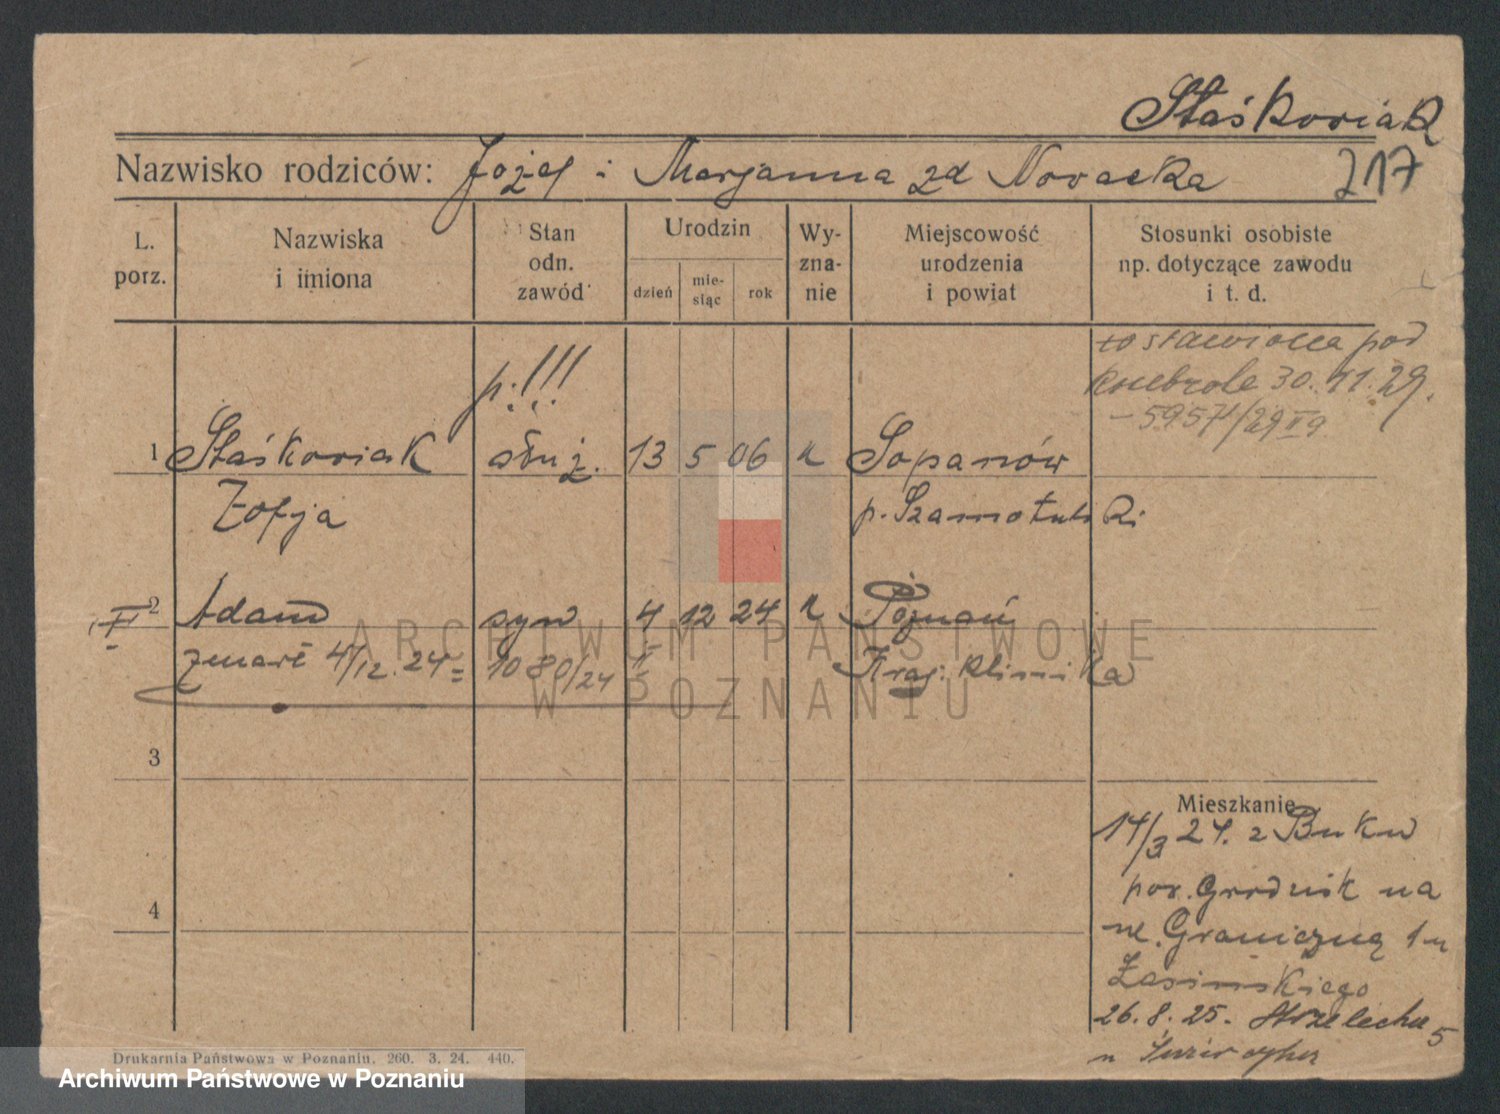 Staśkowiak
Nazwisko rodziców: Józef i Marjanna zd Nowacka 217
L. porz.
Nazwiska i imiona
Stan odn. zawód
Urodzin
dzień
mie-siąc
rok
Wy-zna-nie
Miejscowość urodzenia i powiat
Stosunki osobiste np. dotyczące zawodu i t. d.
p.!!!
pod
30.11.29.
1 Staśkowiak służ. 13 5 06 k Sopanów
Zofja p. Szamotulski
2 Adam syn 4 12 24 k Poznań
zmarł 4/12.24 = 1080/24 II Kraj. klinika
3
Mieszkanie
14/3 24. z Buku
pow. Grodzisk na
ul. Graniczną 1 u
4
26.8.25. Strzelecka 5
u
Drukarnia Państwowa w Poznaniu. 260. 3. 24. 440.
ARCHIWUM PAŃSTWOWE
W POZNANIU
Archiwum Państwowe w Poznaniu